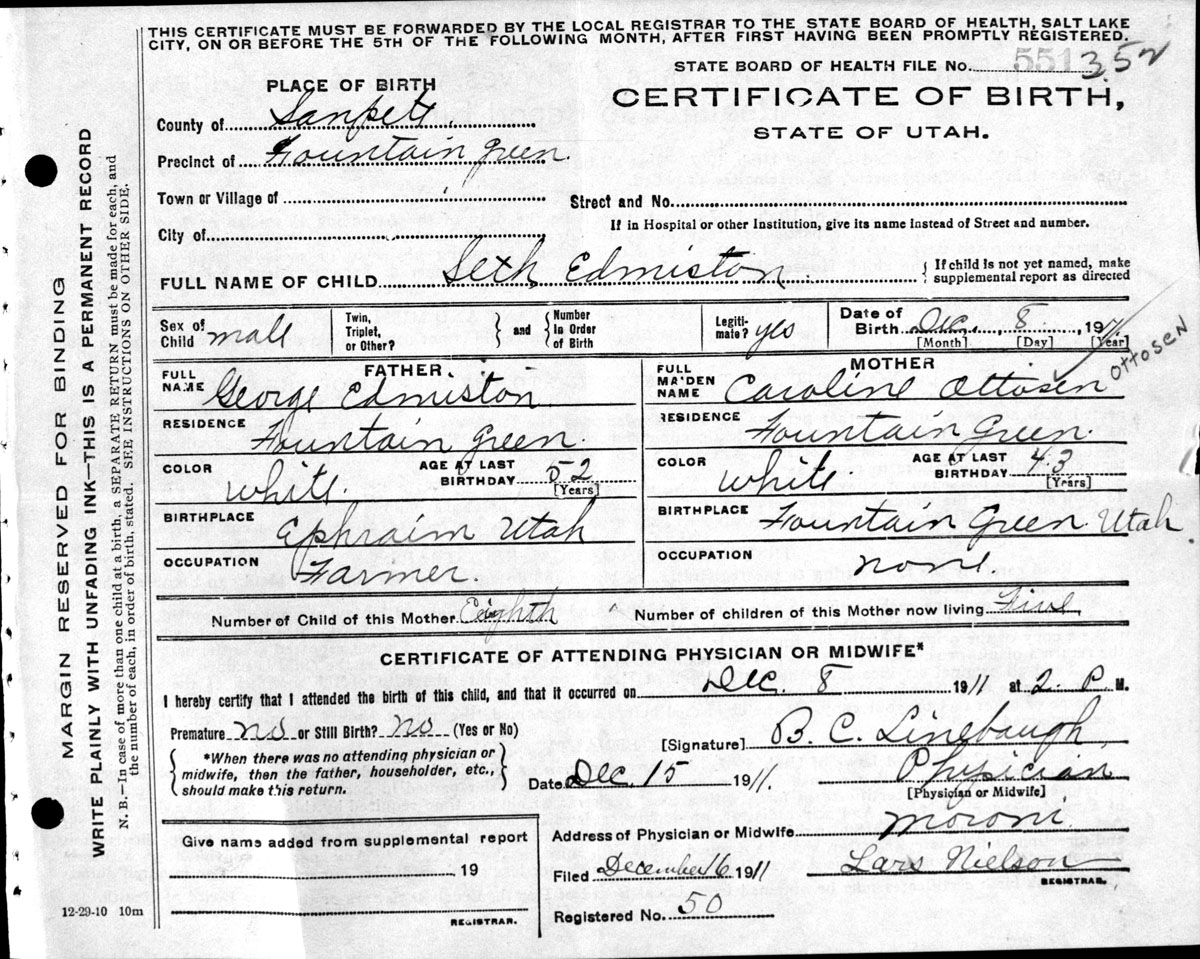 THIS CERTIFICATE MUST BE FORWARDED BY THE LOCAL REGISTRAR TO THE STATE BOARD OF HEALTH, SALT LAKE
CITY, ON OR BEFORE THE 5TH OF THE FOLLOWING MONTH, AFTER FIRST HAVING BEEN PROMPTLY REGISTERED.
STATE BOARD OF HEALTH FILE No. 551 352
PLACE OF BIRTH
CERTIFICATE OF BIRTH,
STATE OF UTAH.
County of Sanpete
Precinct of Fountain Green.
Town or Village of "
Street and No.
If in Hospital or other Institution, give its name instead of Street and number.
City of
FULL NAME OF CHILD Seth Edmiston { If child is not yet named, make
supplemental report as directed
Sex of Child male
Twin, Triplet, or Other? } and { Number In Order of Birth
Legitimate? yes
Date of Birth Dec. 8 1911
[Month] [Day] [Year]
FATHER
FULL NAME George Edmiston
RESIDENCE Fountain Green.
COLOR White. AGE AT LAST BIRTHDAY 52
[Years]
BIRTHPLACE Ephraim Utah
OCCUPATION Farmer.
MOTHER
FULL MAIDEN NAME Caroline Ottosen OTTOSEN
RESIDENCE Fountain Green.
COLOR White. AGE AT LAST BIRTHDAY 43
[Years]
BIRTHPLACE Fountain Green Utah.
OCCUPATION none.
Number of Child of this Mother Eighth Number of children of this Mother now living Five
CERTIFICATE OF ATTENDING PHYSICIAN OR MIDWIFE*
I hereby certify that I attended the birth of this child, and that it occurred on Dec. 8 1911 at 2. P. M.
Premature no or Still Birth? no (Yes or No)
{ *When there was no attending physician or
midwife, then the father, householder, etc.,
should make this return. }
[Signature] B. C. Linebaugh,
Physician
[Physician or Midwife]
Date Dec. 15 1911.
Address of Physician or Midwife Moroni.
Give name added from supplemental report
19
REGISTRAR.
Filed December 16 1911 Lars Nielson
REGISTRAR.
Registered No. 50
12-29-10 10m
MARGIN RESERVED FOR BINDING
WRITE PLAINLY WITH UNFADING INK—THIS IS A PERMANENT RECORD
N. B.—In case of more than one child at a birth, a SEPARATE RETURN must be made for each, and
the number of each, in order of birth, stated. SEE INSTRUCTIONS ON OTHER SIDE.